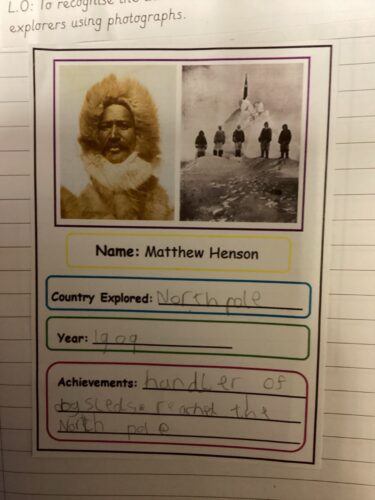 L.O: To recognise the
explorers using photographs.
Name: Matthew Henson
Country Explored: North pole
Year: 1909
Achievements: handler of
dogsleds. reached the
North pole